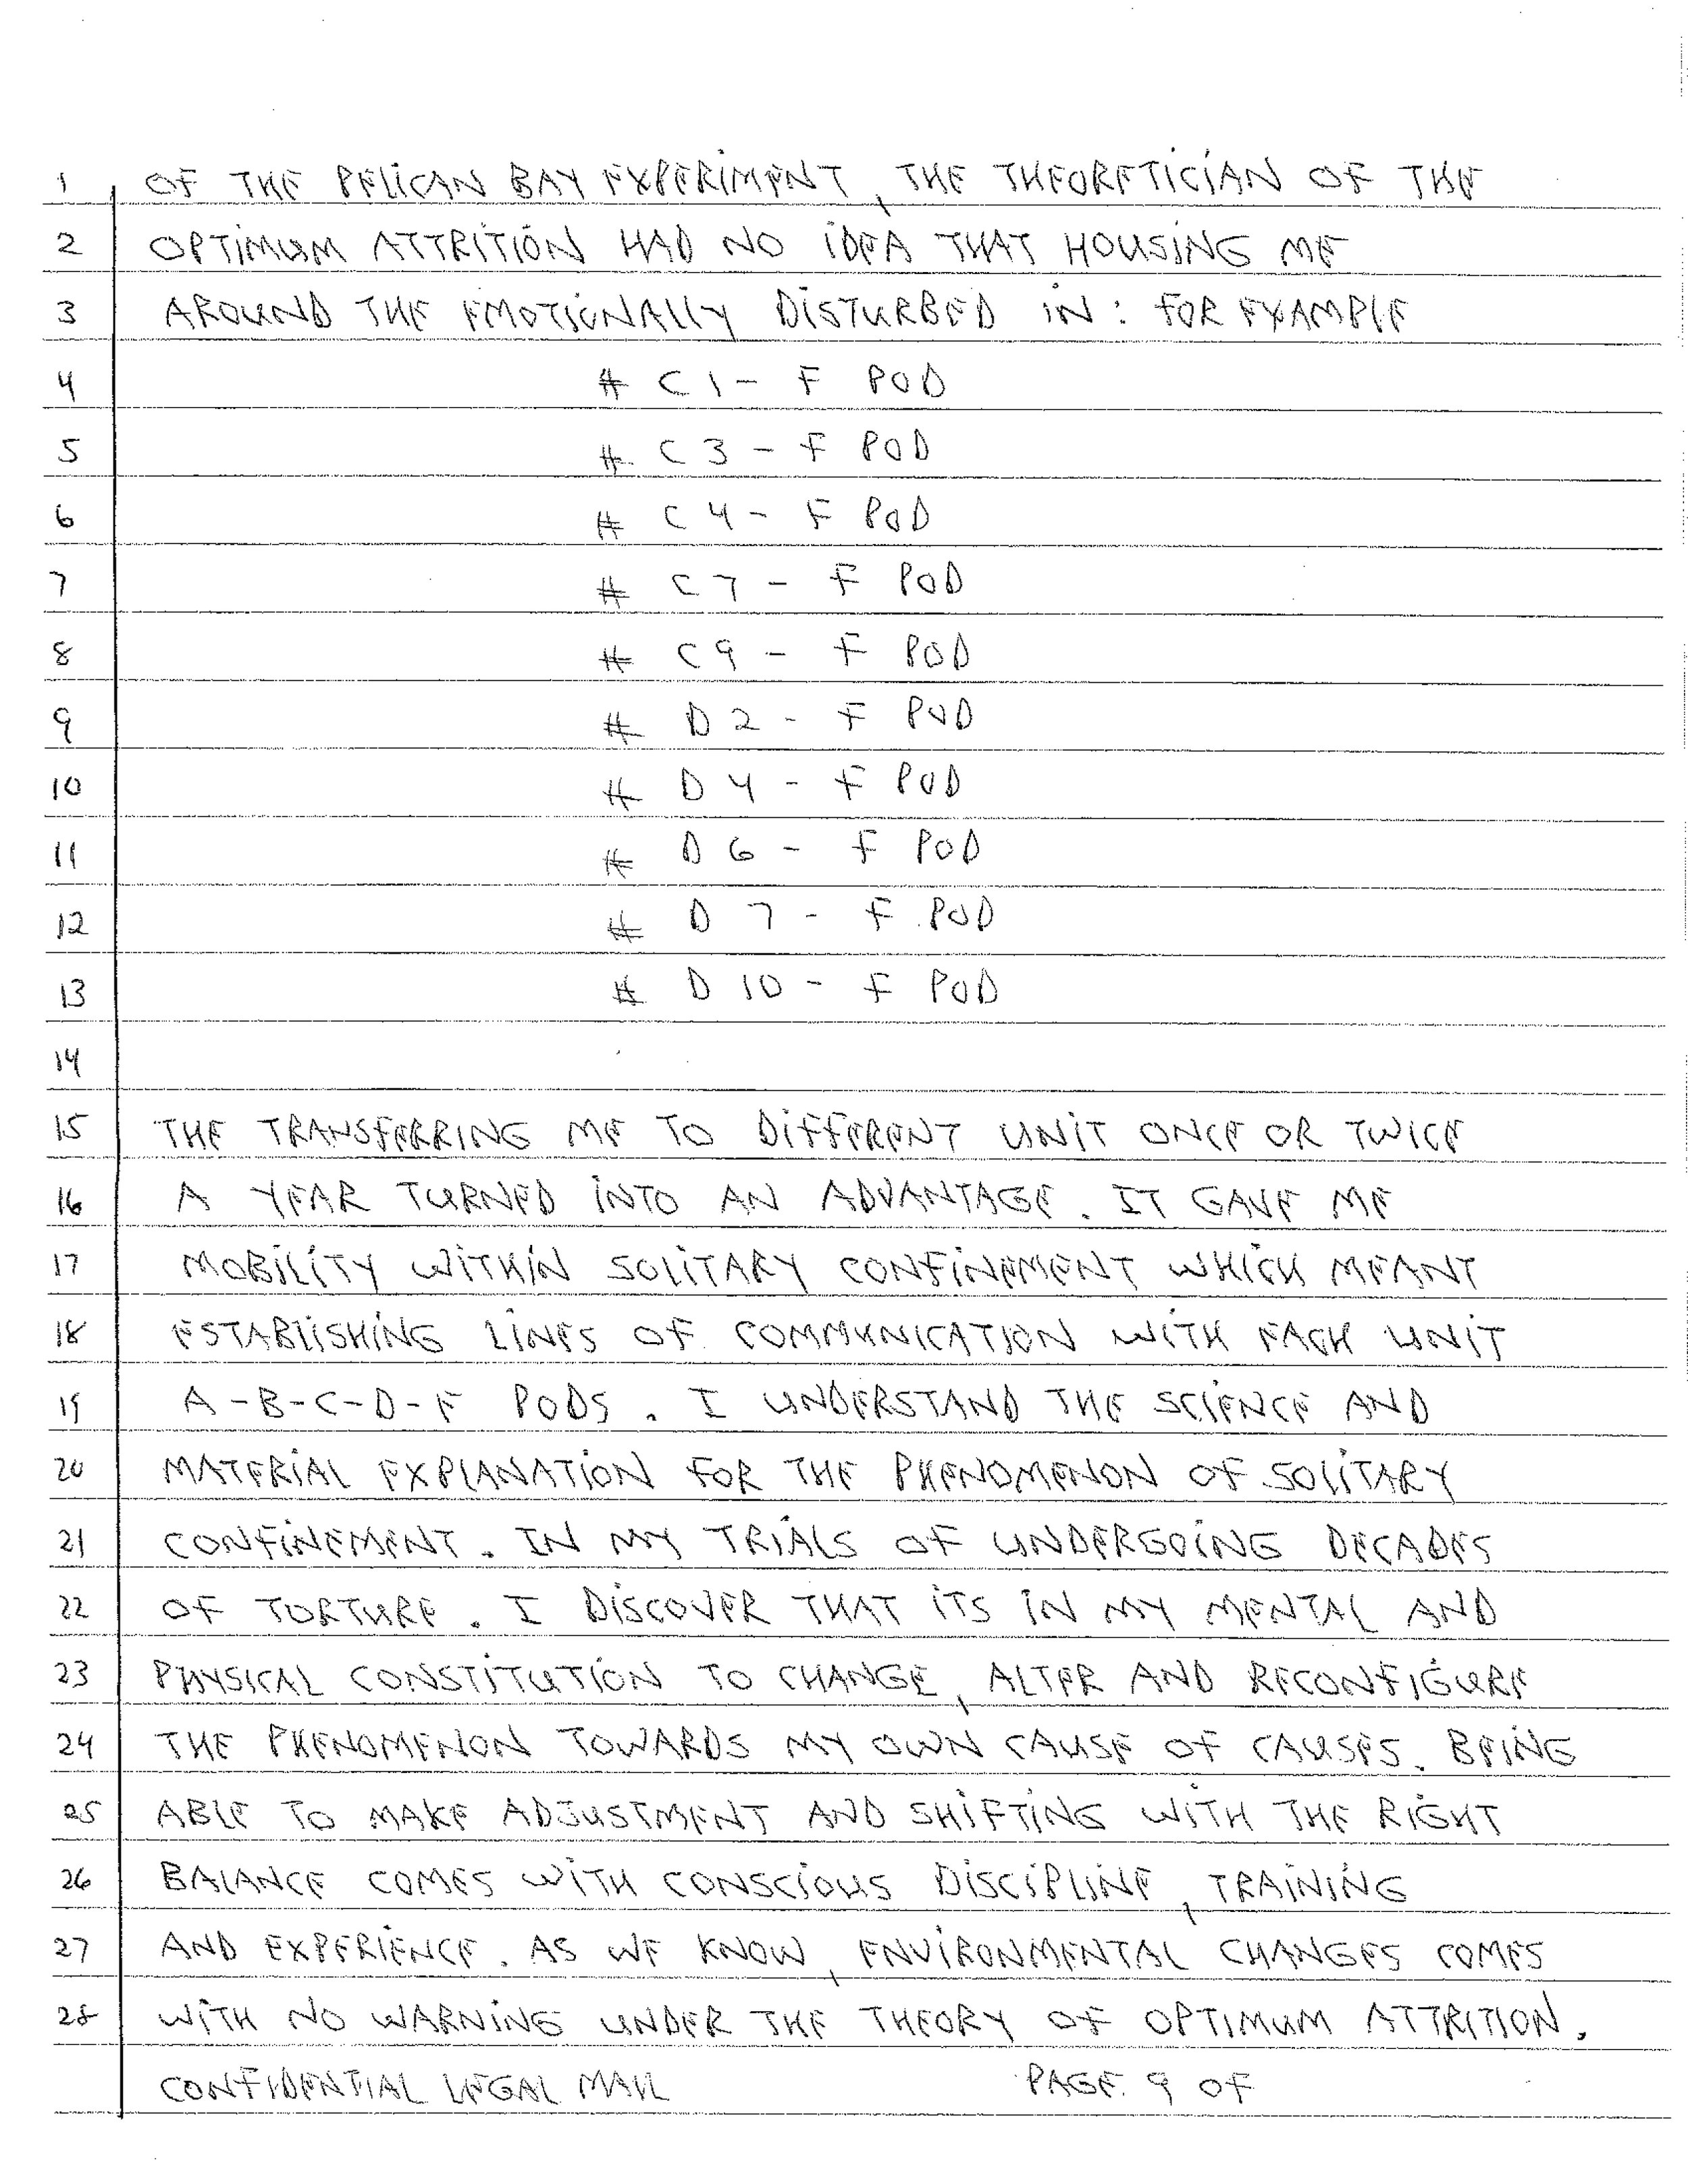 1 OF THE PELICAN BAY EXPERIMENT, THE THEORETICIAN OF THE
2 OPTIMUM ATTRITION HAD NO IDEA THAT HOUSING ME
3 AROUND THE EMOTIONALLY DISTURBED IN: FOR EXAMPLE
4 # C1- F POD
5 # C3 - F POD
6 # C4 - F POD
7 # C7 - F POD
8 # C9 - F POD
9 # D2 - F POD
10 # D4 - F POD
11 # D6 - F POD
12 # D7 - F POD
13 # D10 - F POD
14
15 THE TRANSFERRING ME TO DIFFERENT UNIT ONCE OR TWICE
16 A YEAR TURNED INTO AN ADVANTAGE. IT GAVE ME
17 MOBILITY WITHIN SOLITARY CONFINEMENT WHICH MEANT
18 ESTABLISHING LINES OF COMMUNICATION WITH EACH UNIT
19 A-B-C-D-F PODS. I UNDERSTAND THE SCIENCE AND
20 MATERIAL EXPLANATION FOR THE PHENOMENON OF SOLITARY
21 CONFINEMENT. IN MY TRIALS OF UNDERGOING DECADES
22 OF TORTURE. I DISCOVER THAT ITS IN MY MENTAL AND
23 PHYSICAL CONSTITUTION TO CHANGE, ALTER AND RECONFIGURE
24 THE PHENOMENON TOWARDS MY OWN CAUSE OF CAUSES. BEING
25 ABLE TO MAKE ADJUSTMENT AND SHIFTING WITH THE RIGHT
26 BALANCE COMES WITH CONSCIOUS DISCIPLINE, TRAINING
27 AND EXPERIENCE. AS WE KNOW, ENVIRONMENTAL CHANGES COMES
28 WITH NO WARNING UNDER THE THEORY OF OPTIMUM ATTRITION.
CONFIDENTIAL LEGAL MAIL PAGE 9 OF